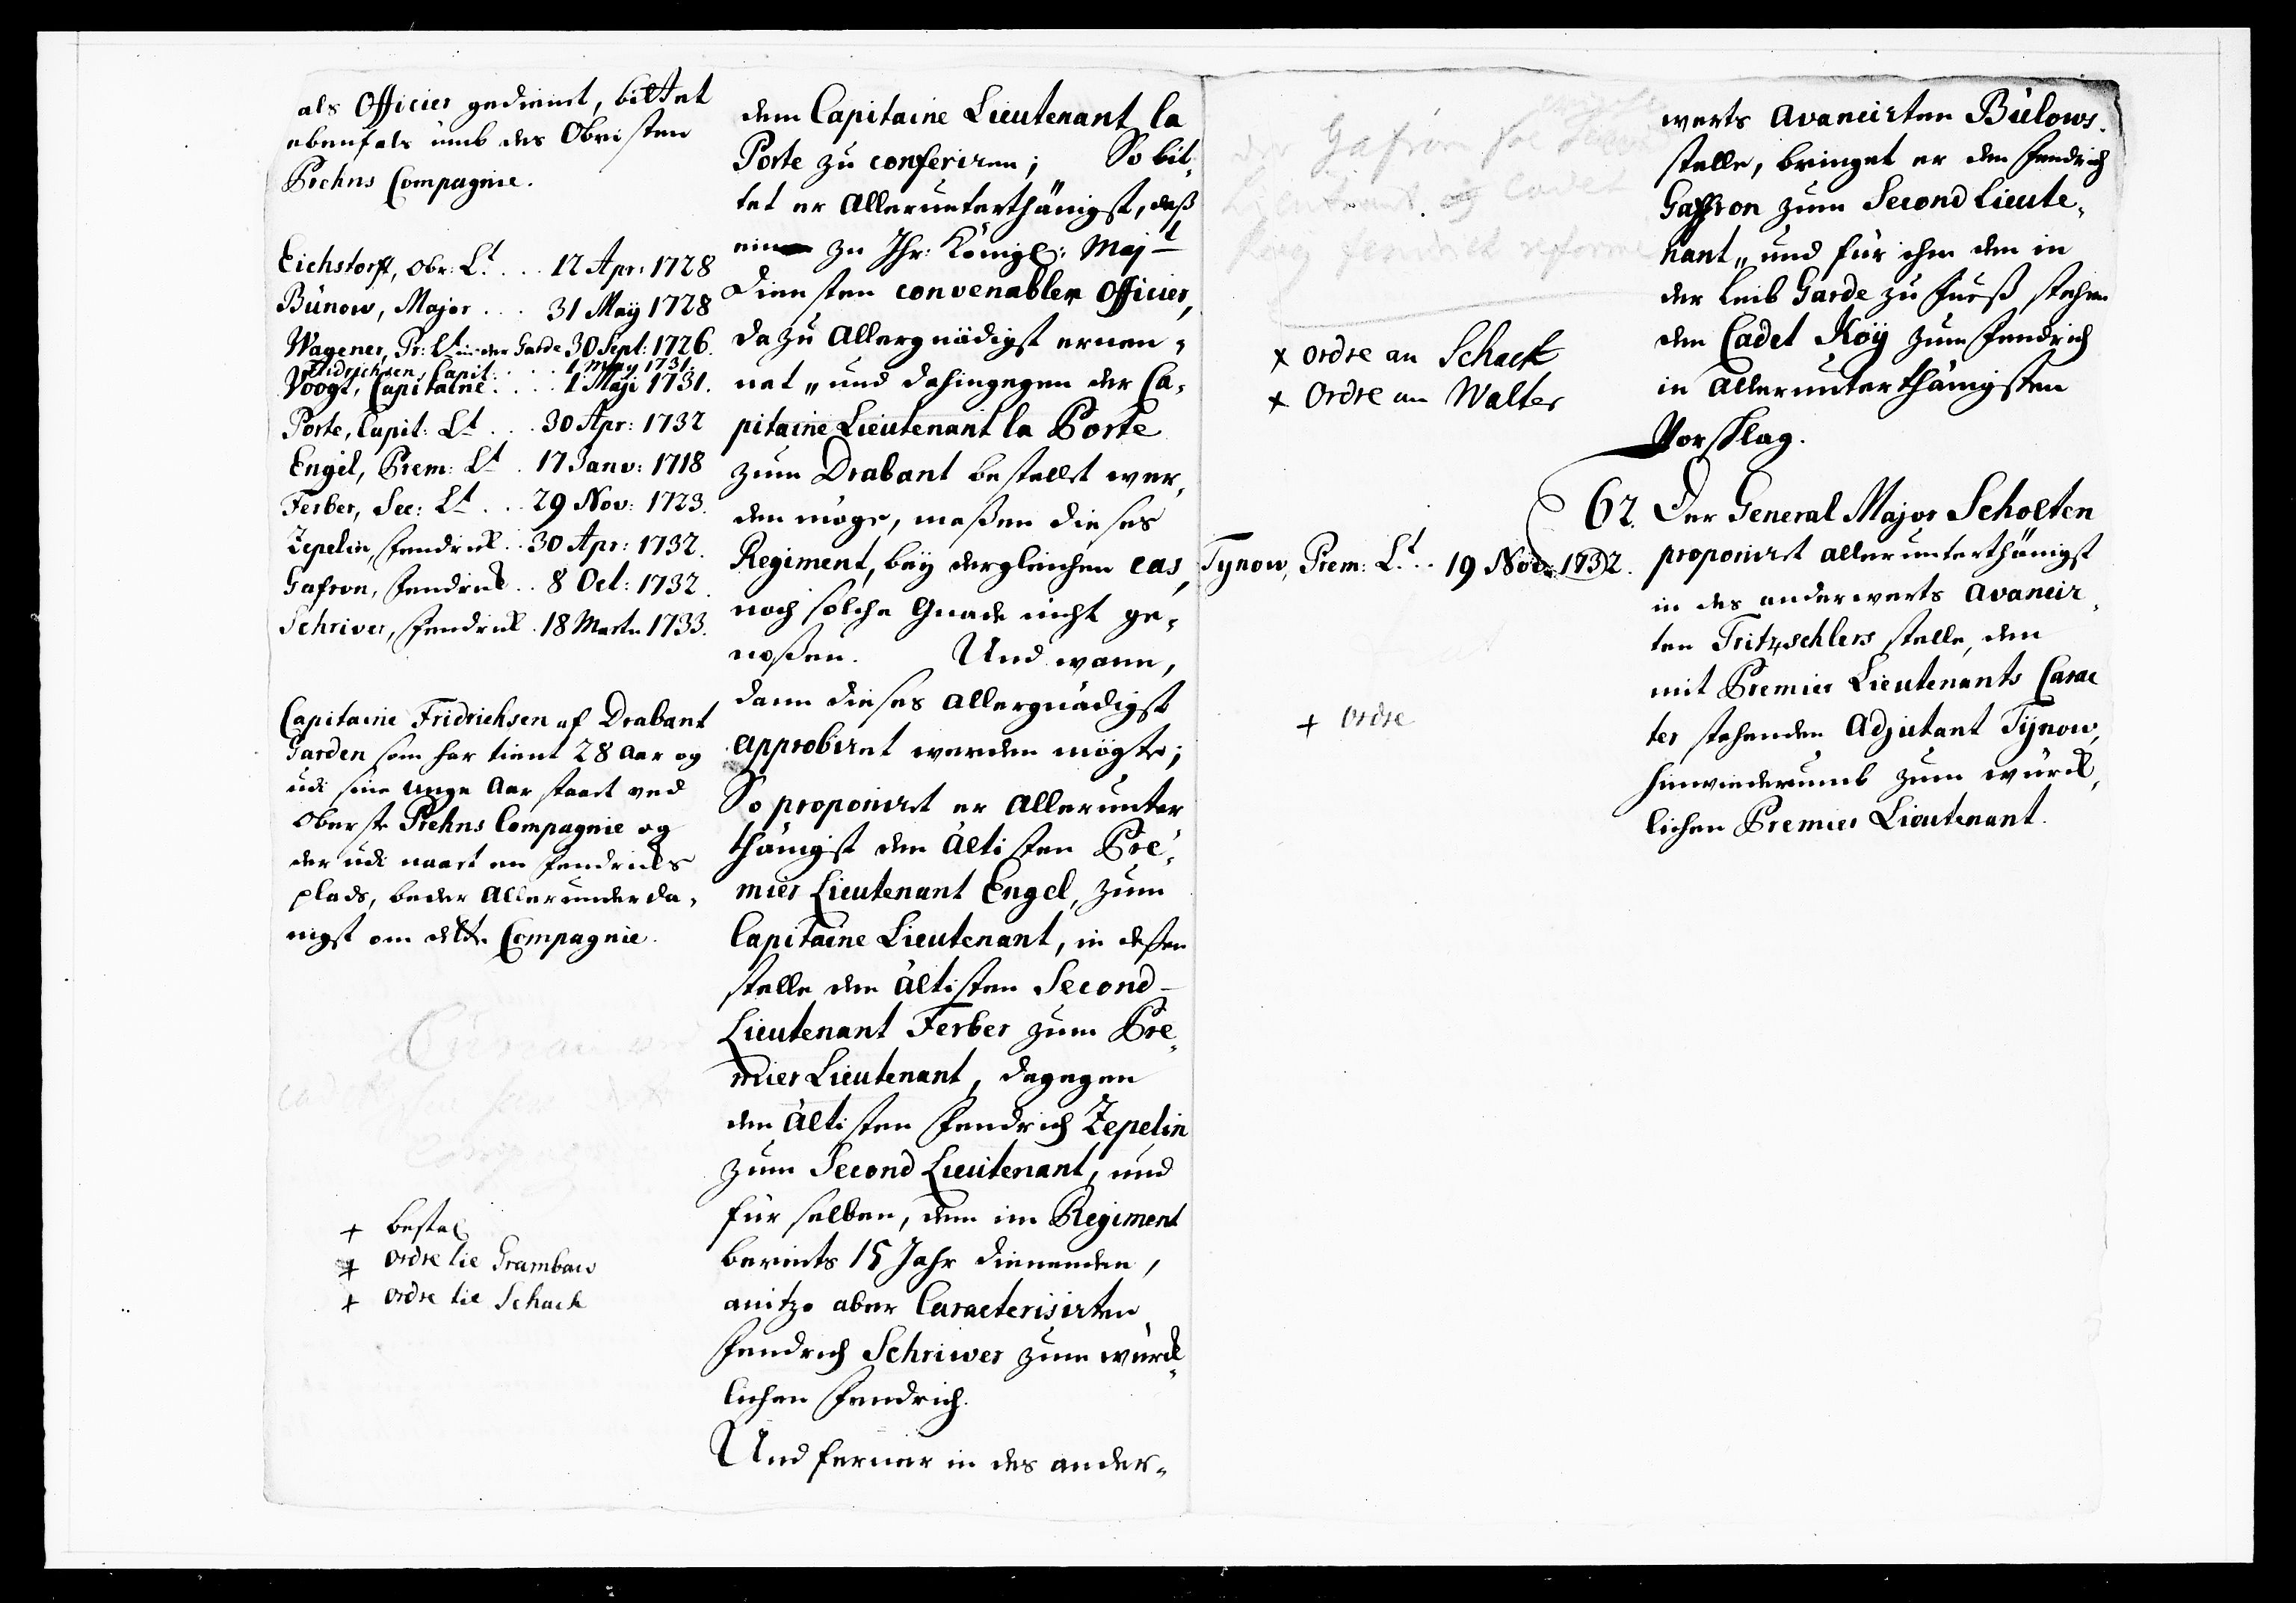 als Officier gedienet, bittet
ebenfals umb des Obristen
Prehns Compagnie.
Eichstorff, Obr: Lt. . . . 12 Apr: 1728
Bünow, Major . . . 31 Maÿ 1728
Wagener, Pr: Lt in der Garde 30 Sept: 1726.
Fridrichsen, Capit. . . . . 1. May 1731.
Voogt, Capitaine . . . . 1 Maji 1731.
Porte, Capit: Lt . . . 30 Apr: 1732
Engel, Prem: Lt . 17 Janv: 1718
Ferber, Sec: Lt . . . 29 Nov: 1723.
Zepelin, Fendrick . . 30 Apr: 1732.
Gafron, Fendrick . . 8 Oct: 1732.
Schriver, Fendrick . 18 Martii 1733.
Capitaine Fridrichsen af Drabant
Garden som har tient 28 Aar og
udi sine unge Aar staaet ved
Oberste Prehns Compagnie og
der udi naaet en Fendricks
plads, beder Allerunderda-
nigst om dette Compagnie.
+ bestal
+ ordre til Grambow
+ ordre til Schack
dem Capitaine Lieutenant la
Porte zu conferiren; So bit-
tet er Allerunterthänigst, daß
ein zu Ihr: Königl: Majt
Diensten convenabler Officier,
dazu Allergnädigst ernen-
net, und dahingegen der Ca-
pitaine Lieutenant la Porte
zum Drabant bestellet wer-
den möge, maßen dieses
Regiment, bey dergleichen cas,
noch solche Gnade nicht ge-
noßen. Und wann,
dann dieses Allergnädigst
approbiret werden mögte;
So proponiret er Allerunter
thänigst den ältisten Pre-
mier Lieutenant Engel, zum
Capitaine Lieutenant, in deßen
stelle den ältisten Second-
Lieutenant Ferber zum Pre-
mier Lieutenant, dagegen
den ältisten Fendrich Zepelin
zum Second Lieutenant, und
für selben, dem im Regiment
bereits 15 Jahr dienenden,
anitzo aber Caracterisirten
Fendrich Schriwer zum würck-
lichen Fendrich.
Und ferner in des ander-
der Gafron
Lieutenant og Cadet
Fendrick reforme
+ ordre an Schack
+ Ordre an Walter
Tynow, Prem: Lt. . . 19 Nov: 1732.
+ ordre
werts avancirten Bülows
stelle, bringet er den Fendrich
Gaffron zum Second Lieute-
nant, und für ihm den in
der Leib Garde zu Fueß stehen
den Cadet Köÿ zum Fendrich
in Allerunterthänigsten
Vorschlag.
62. Der General Major Scholten
proponiret allerunterthänigst
in des anderwerts avancir-
ten Tritzschlers stelle, den
mit Premier Lieutenants Carac
ter stehenden Adjutant Tÿnow,
hinwiederumb zum würck-
lichen Premier Lieutenant.